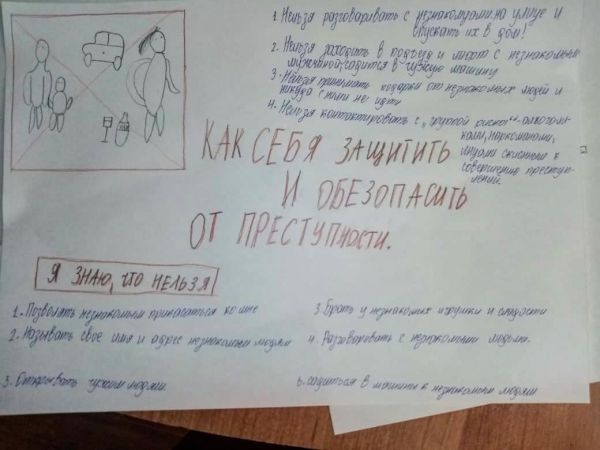 1. Нельзя разговаривать с незнакомцами на улице и
впускать их в дом!
2. Нельзя заходить в подъезд и лифт с незнакомым
мужчиной, садится в чужую машину
3. Нельзя принимать подарки от незнакомых людей и
никуда с ними не идти
4. Нельзя контактировать с „группой риска“ - алкоголи-
ками, наркоманами,
лицами склонными к
совершению преступ-
лений.
КАК СЕБЯ ЗАЩИТИТЬ
И ОБЕЗОПАСИТЬ
ОТ ПРЕСТУПНОСТИ.
Я ЗНАЮ, ЧТО НЕЛЬЗЯ
1. Позволять незнакомым прикасаться ко мне
2. Называть свое имя и адрес незнакомым людям
3. Открывать чужим людям.
3. Брать у незнакомых игрушки и сладости
4. Разговаривать с незнакомыми людьми.
садиться в машины к незнакомым людям